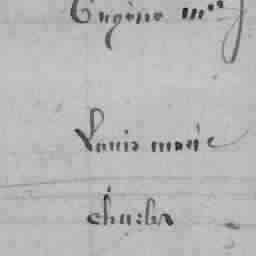 Eugène m
Louis marie
charles